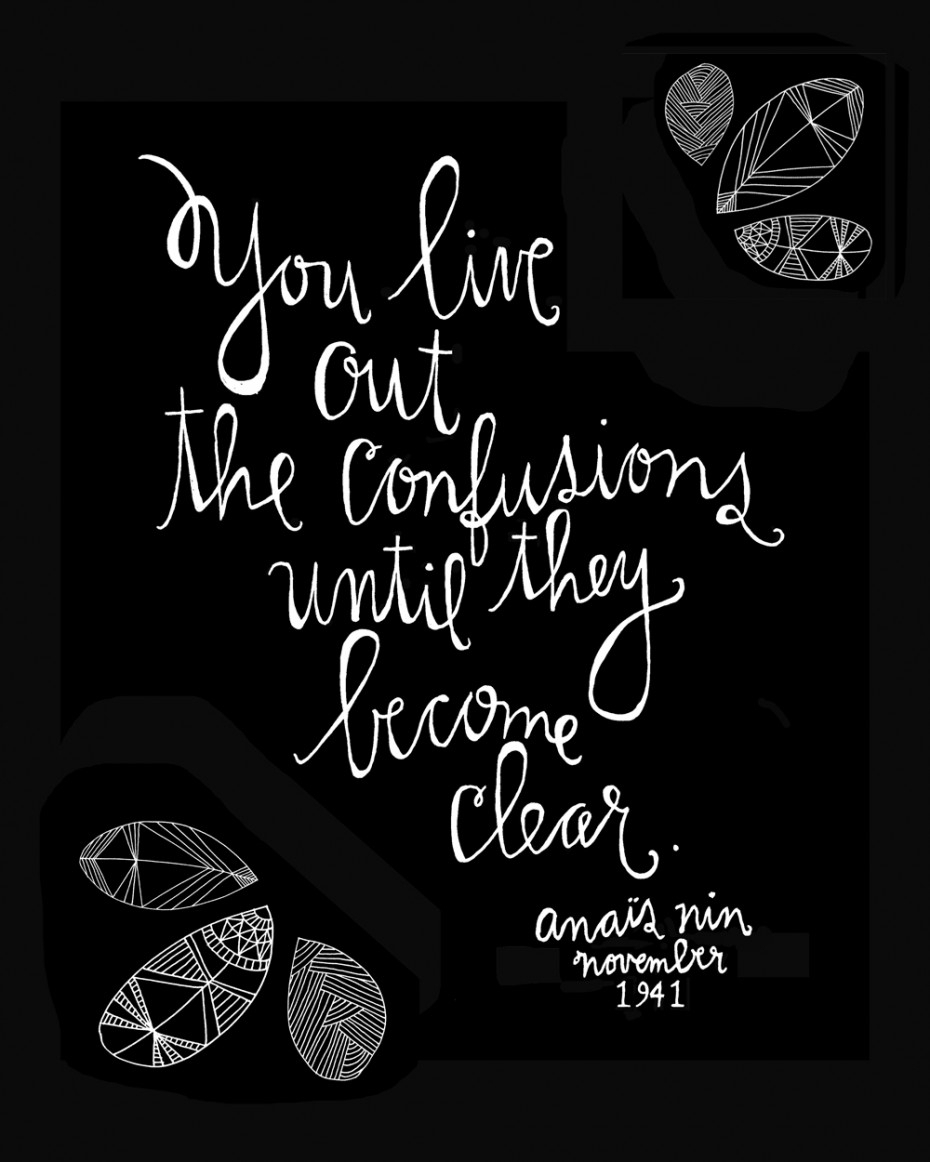 You live
out
the confusions
until they
become
clear.
anaïs nin
november
1941